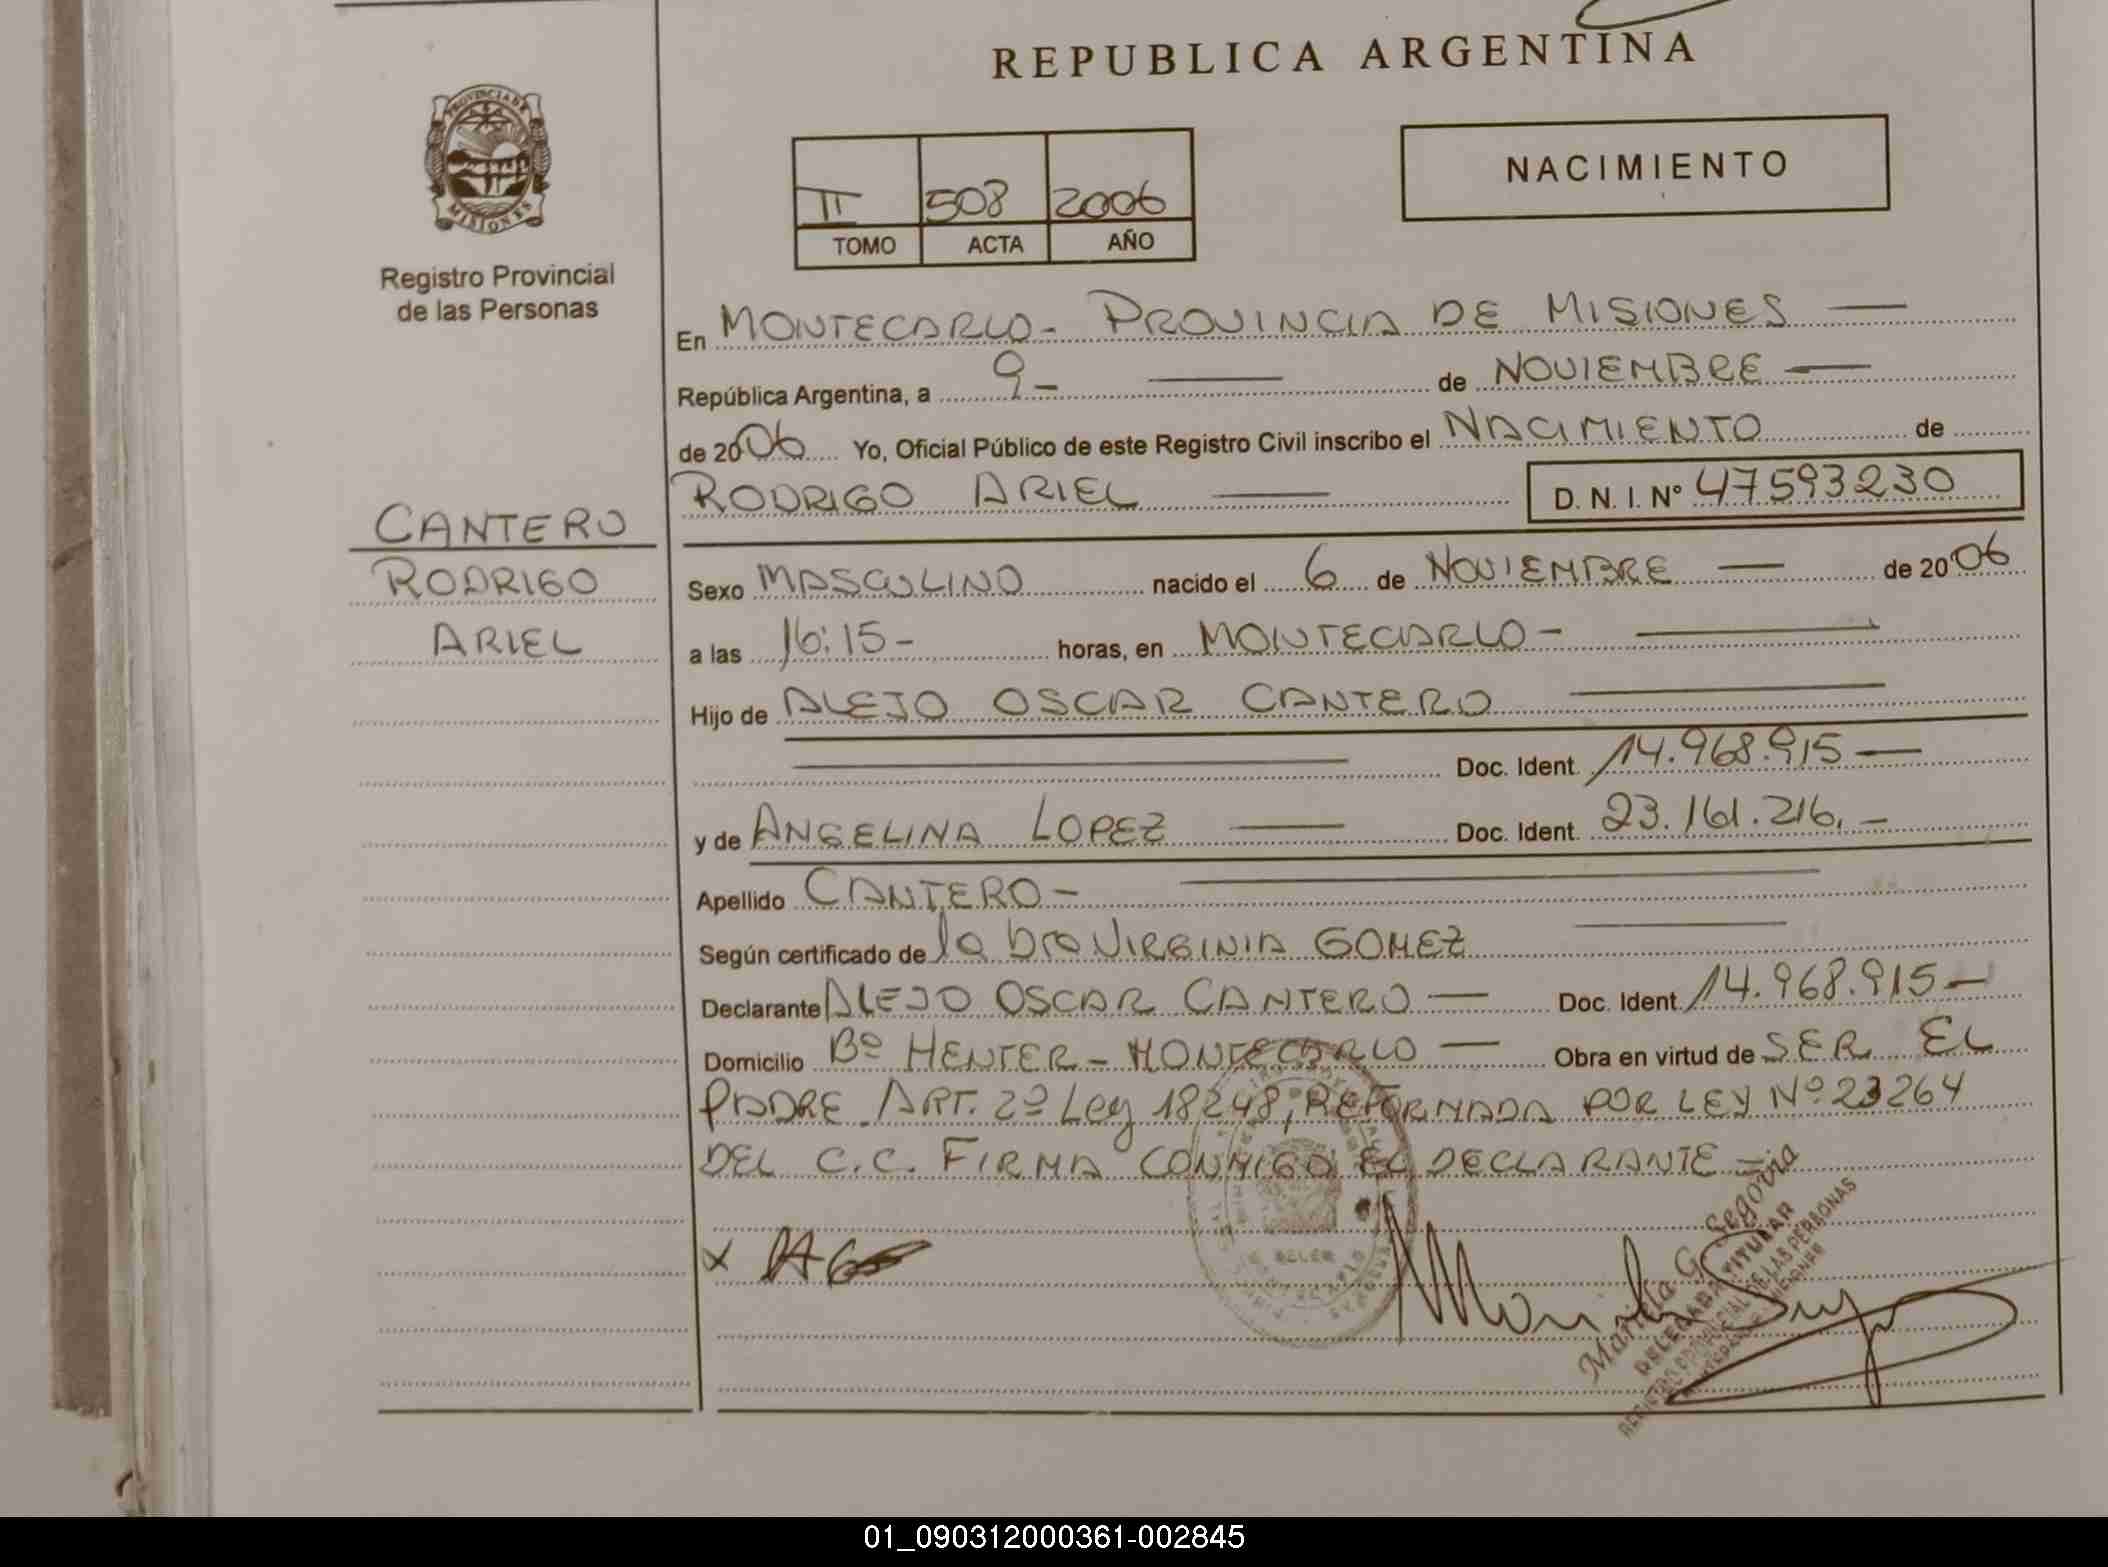 REPUBLICA ARGENTINA
PROVINCIA DE
MISIONES
Registro Provincial
de las Personas
II 508 2006
TOMO ACTA AÑO
NACIMIENTO
En MONTECARLO- PROVINCIA DE MISIONES —
República Argentina, a 9- — de NOVIEMBRE —
de 2006 Yo, Oficial Público de este Registro Civil inscribo el NACIMIENTO de
RODRIGO ARIEL — D. N. I. Nº 47593230
CANTERO
RODRIGO
ARIEL
Sexo MASCULINO nacido el 6 de NOVIEMBRE — de 2006
a las 16:15- horas, en MONTECARLO- —
Hijo de ALEJO OSCAR CANTERO —
— Doc. Ident. 14.968.915 —
y de ANGELINA LOPEZ — Doc. Ident. 23.161.216.-
Apellido CANTERO- —
Según certificado de la Dra VIRGINIA GOMEZ —
Declarante ALEJO OSCAR CANTERO — Doc. Ident. 14.968.915-
Domicilio Bº HENTER - MONTECARLO — Obra en virtud de SER EL
PADRE. ART. 2º Ley 18248, REFORMADA POR LEY Nº 23264
DEL C.C. FIRMA CONMIGO EL DECLARANTE -
x
Mariela G. Segovia
DELEGADA TITULAR
REGISTRO PROVINCIAL DE LAS PERSONAS
01_090312000361-002845